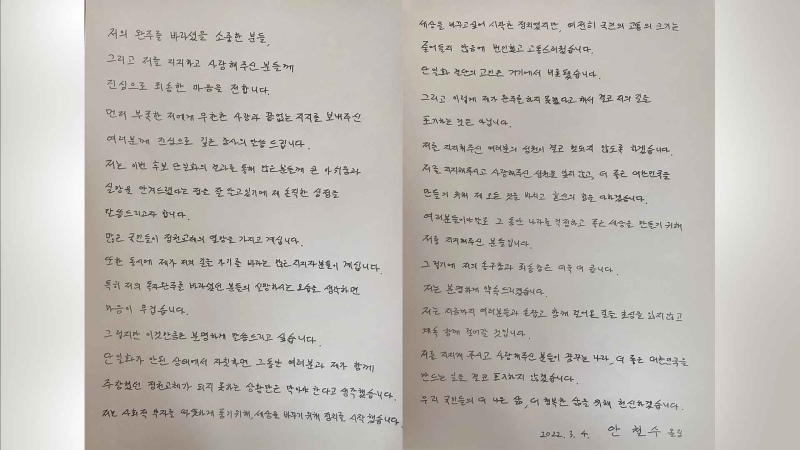 저의 완주를 바라셨을 소중한 분들,
그리고 저를 지지하고 사랑해주신 분들께
진심으로 죄송한 마음을 전합니다.
먼저 부족한 저에게 무한한 사랑과 끝없는 지지를 보내주신
여러분께 진심으로 깊은 감사의 말씀 드립니다.
저는 이번 후보 단일화의 결과를 통해 많은 분들께 큰 아쉬움과
실망을 안겨드렸다는 점은 잘 알고있기에 제 솔직한 심정을
말씀드리고자 합니다.
많은 국민들이 정권교체의 열망을 가지고 계십니다.
또한 동시에 제가 저의 길을 가기를 바라는 많은 지지자분들이 계십니다.
특히 저의 독자완주를 바라셨던 분들의 실망하시는 모습을 생각하면
마음이 무겁습니다.
그렇지만 이것만큼은 분명하게 말씀드리고 싶습니다.
단일화가 안된 상태에서 자칫하면 그동안 여러분과 제가 함께
주장했던 정권교체가 되지 못하는 상황만은 막아야 한다고 생각했습니다.
저는 사회적 부자를 따뜻하게 품기위해, 세상을 바꾸기 위해 정치를 시작했습니다.
세상을 바꾸고싶어 시작한 정치였지만, 여전히 국민의 고통의 크기는
줄어들지 않음에 번민했고 고통스러웠습니다.
단일화 결단의 고민은 거기에서 비롯됐습니다.
그리고 이렇게 제가 완주를 하지 못했다고 해서 결코 저의 길을
포기하는 것은 아닙니다.
저를 지지해주신 여러분의 성원이 결코 헛되지 않도록 하겠습니다.
저를 지지해주시고 사랑해주신 성원을 잊지 않고, 더 좋은 대한민국을
만들기 위해 제 모든 것을 바치고 혼신의 힘을 다하겠습니다.
여러분들이야말로 그 동안 나라를 걱정하고 좋은 세상을 만들기 위해
저를 지지해주신 분들입니다.
그렇기에 저의 송구함과 죄송함은 더욱 더 큽니다.
저는 분명하게 약속드리겠습니다.
저는 지금까지 여러분들과 손잡고 함께 걸어온 길을 초심을 잃지 않고
계속 함께 걸어갈 것입니다.
저를 지지해 주시고 사랑해주신 분들이 꿈꾸는 나라, 더 좋은 대한민국을
만드는 일을 결코 포기하지 않겠습니다.
우리 국민들의 더 나은 삶, 더 행복한 삶을 위해 헌신하겠습니다.
2022. 3. 4. 안 철 수 올림